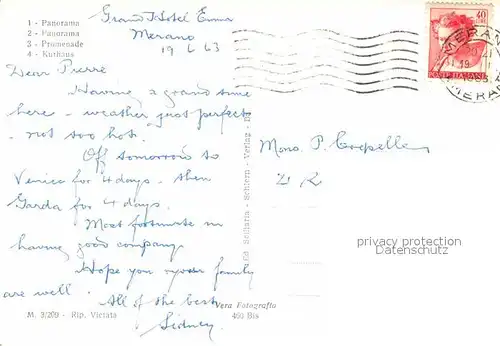 1 - Panorama
2 - Panorama
3 - Promenade
4 - Kurhaus
Grand Hotel Emma
Merano
19 6 63
Dear Pierre
Having a grand time
here - weather just perfect
- not too hot.
Off tomorrow to
Venice for 4 days. then
Garda for 4 days.
Most fortunate in
having good company.
Hope you & your family
are well. All of the best
Sidney.
M. 3/209 - Rip. Vietata
Vera Fotografia
460 Bis
Schiern - Verlag
40
POSTE ITALIANE
MERAN
19
1963
MERAN
Mons. P. Crepelle
privacy protection
Datenschutz